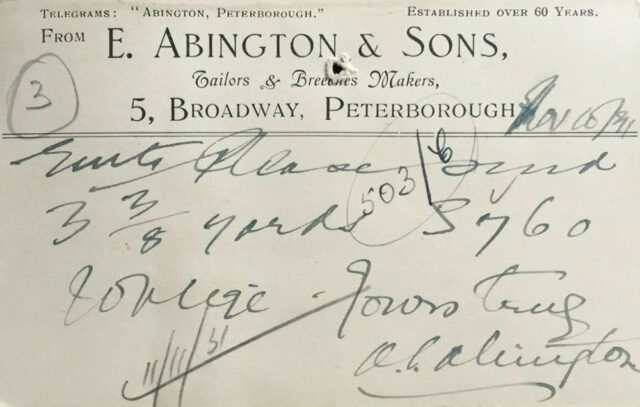 TELEGRAMS: "ABINGTON, PETERBOROUGH." ESTABLISHED OVER 60 YEARS.
FROM E. ABINGTON & SONS,
Tailors & Breeches Makers,
5, BROADWAY, PETERBOROUGH
3
Nov 10/31
Gents Please Send
503/6
3 3/8 yards 3760
& oblige . Yours truly
11/11/31
Abington